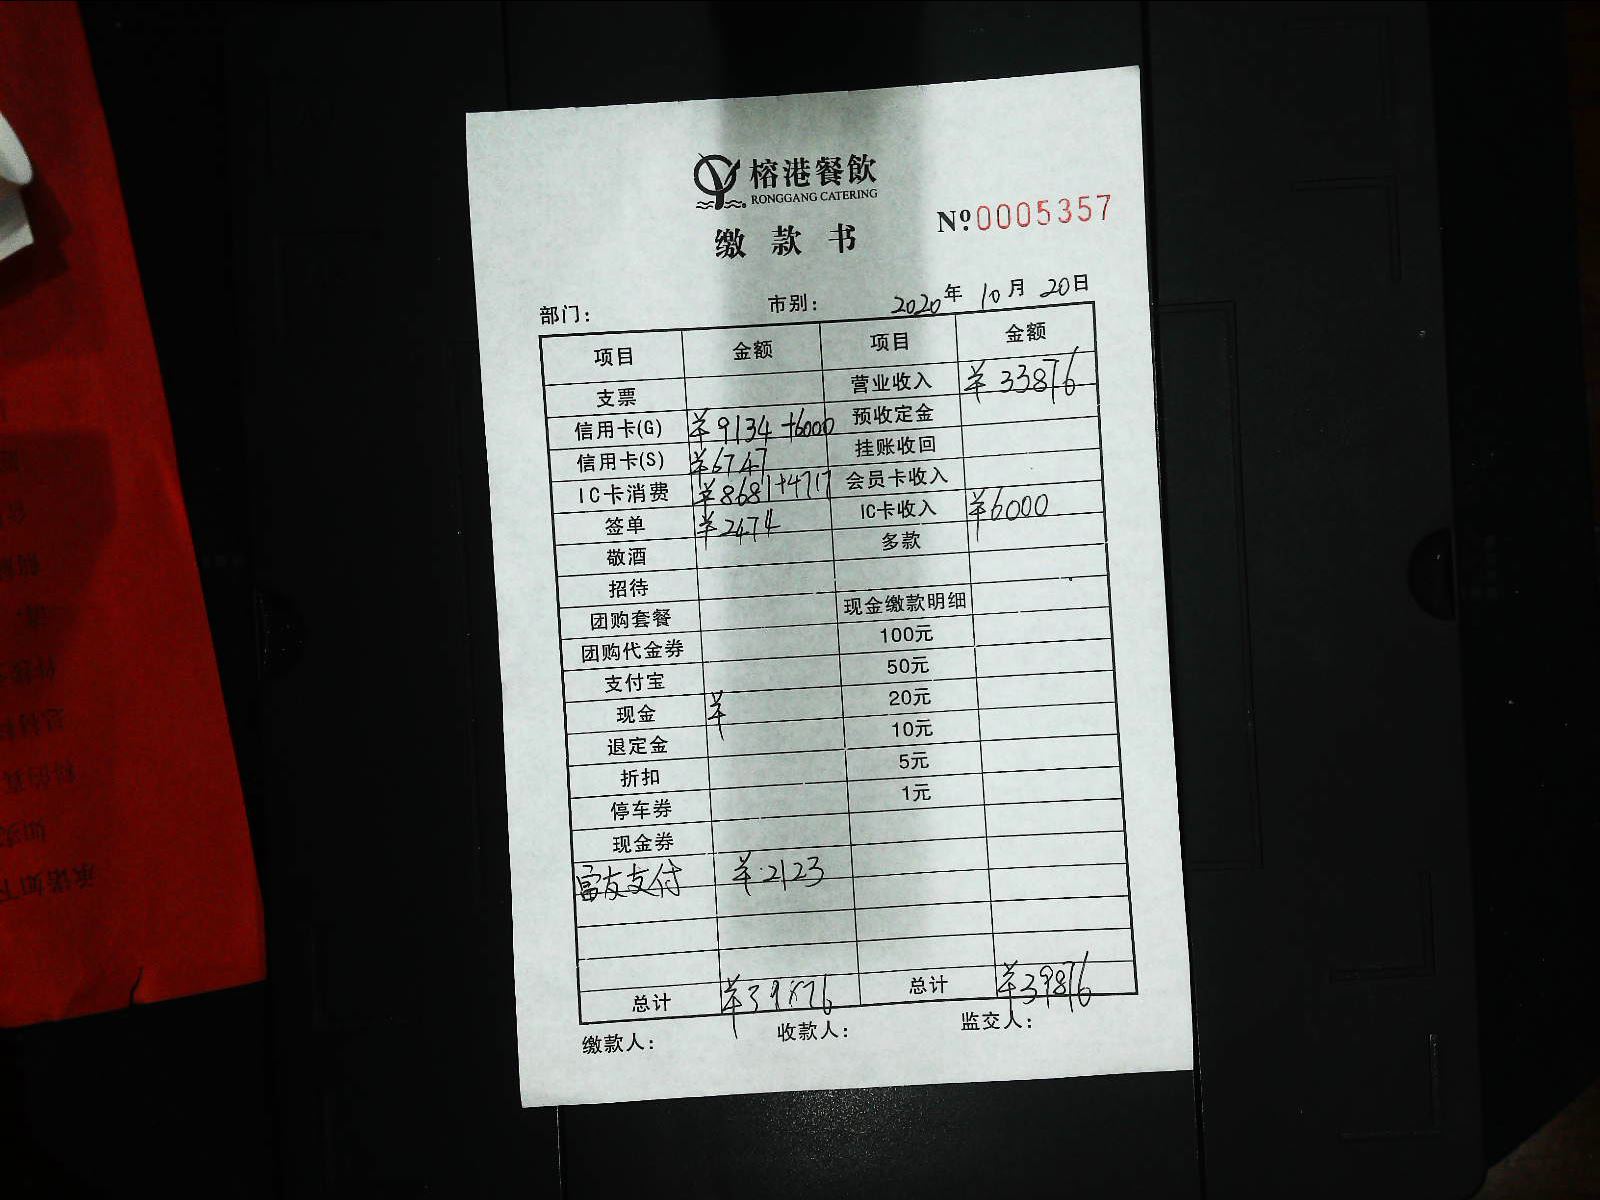 榕港餐飲
RONGGANG CATERING
缴款书
№:0005357
部门: 市别: 2020年10月20日
项目 金额 项目 金额
支票 营业收入 ¥33876
信用卡(G) ¥9134+6000 预收定金
信用卡(S) ¥6747 挂账收回
IC卡消费 ¥8681+4717 会员卡收入
签单 ¥2474 IC卡收入 ¥6000
敬酒 多款
招待
团购套餐 现金缴款明细
团购代金券 100元
支付宝 50元
现金 ¥ 20元
退定金 10元
折扣 5元
停车券 1元
现金券
富友支付 ¥2123
总计 ¥39876 总计 ¥39876
缴款人: 收款人: 监交人: